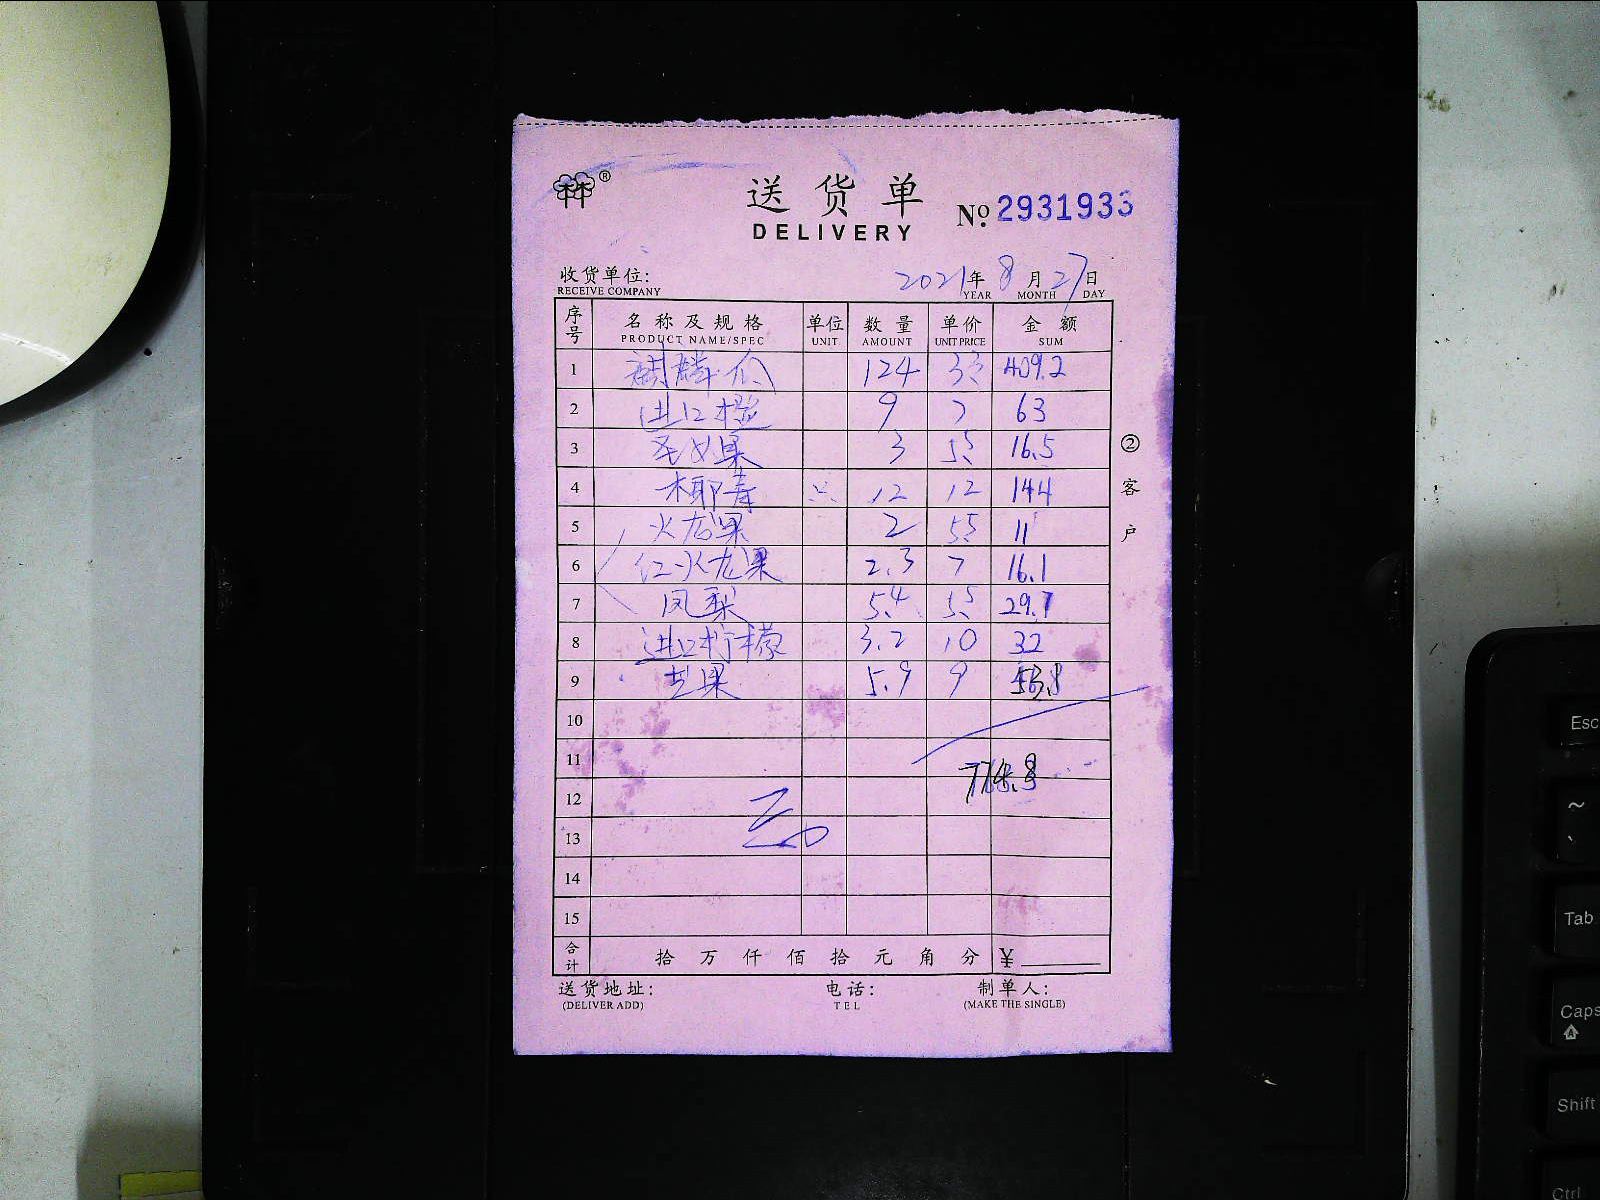 林®
送货单
DELIVERY
No. 2931933
收货单位: 2021年8月27日
RECEIVE COMPANY YEAR MONTH DAY
序号 名称及规格 单位 数量 单价 金额
PRODUCT NAME/SPEC UNIT AMOUNT UNIT PRICE SUM
1 麒麟瓜 124 3.3 409.2
2 进口橙 9 7 63
3 圣女果 3 5.5 16.5
4 椰青 只 12 12 144
5 火龙果 2 5.5 11
6 红火龙果 2.3 7 16.1
7 凤梨 5.4 5.5 29.7
8 进口柠檬 3.2 10 32
9 芒果 5.9 9
10
11
12
13
14
15
合计 拾万仟佰拾元角分 ¥
送货地址: 电话: 制单人:
(DELIVER ADD) TEL (MAKE THE SINGLE)
②客户
Esc
~
`
Tab
Caps
Shift
Ctrl